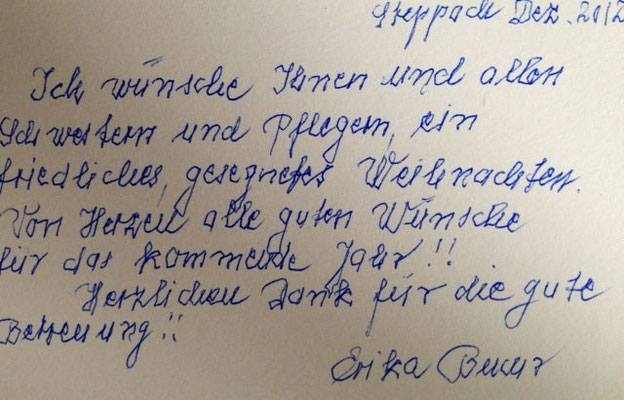 Steppach Dez. 2012
Ich wünsche Ihnen und allen
Schwestern und Pflegern, ein
friedliches, gesegnetes Weihnachten.
Von Herzen alle guten Wünsche
für das kommende Jahr!!
Herzlichen Dank für die gute
Betreuung!!
Erika